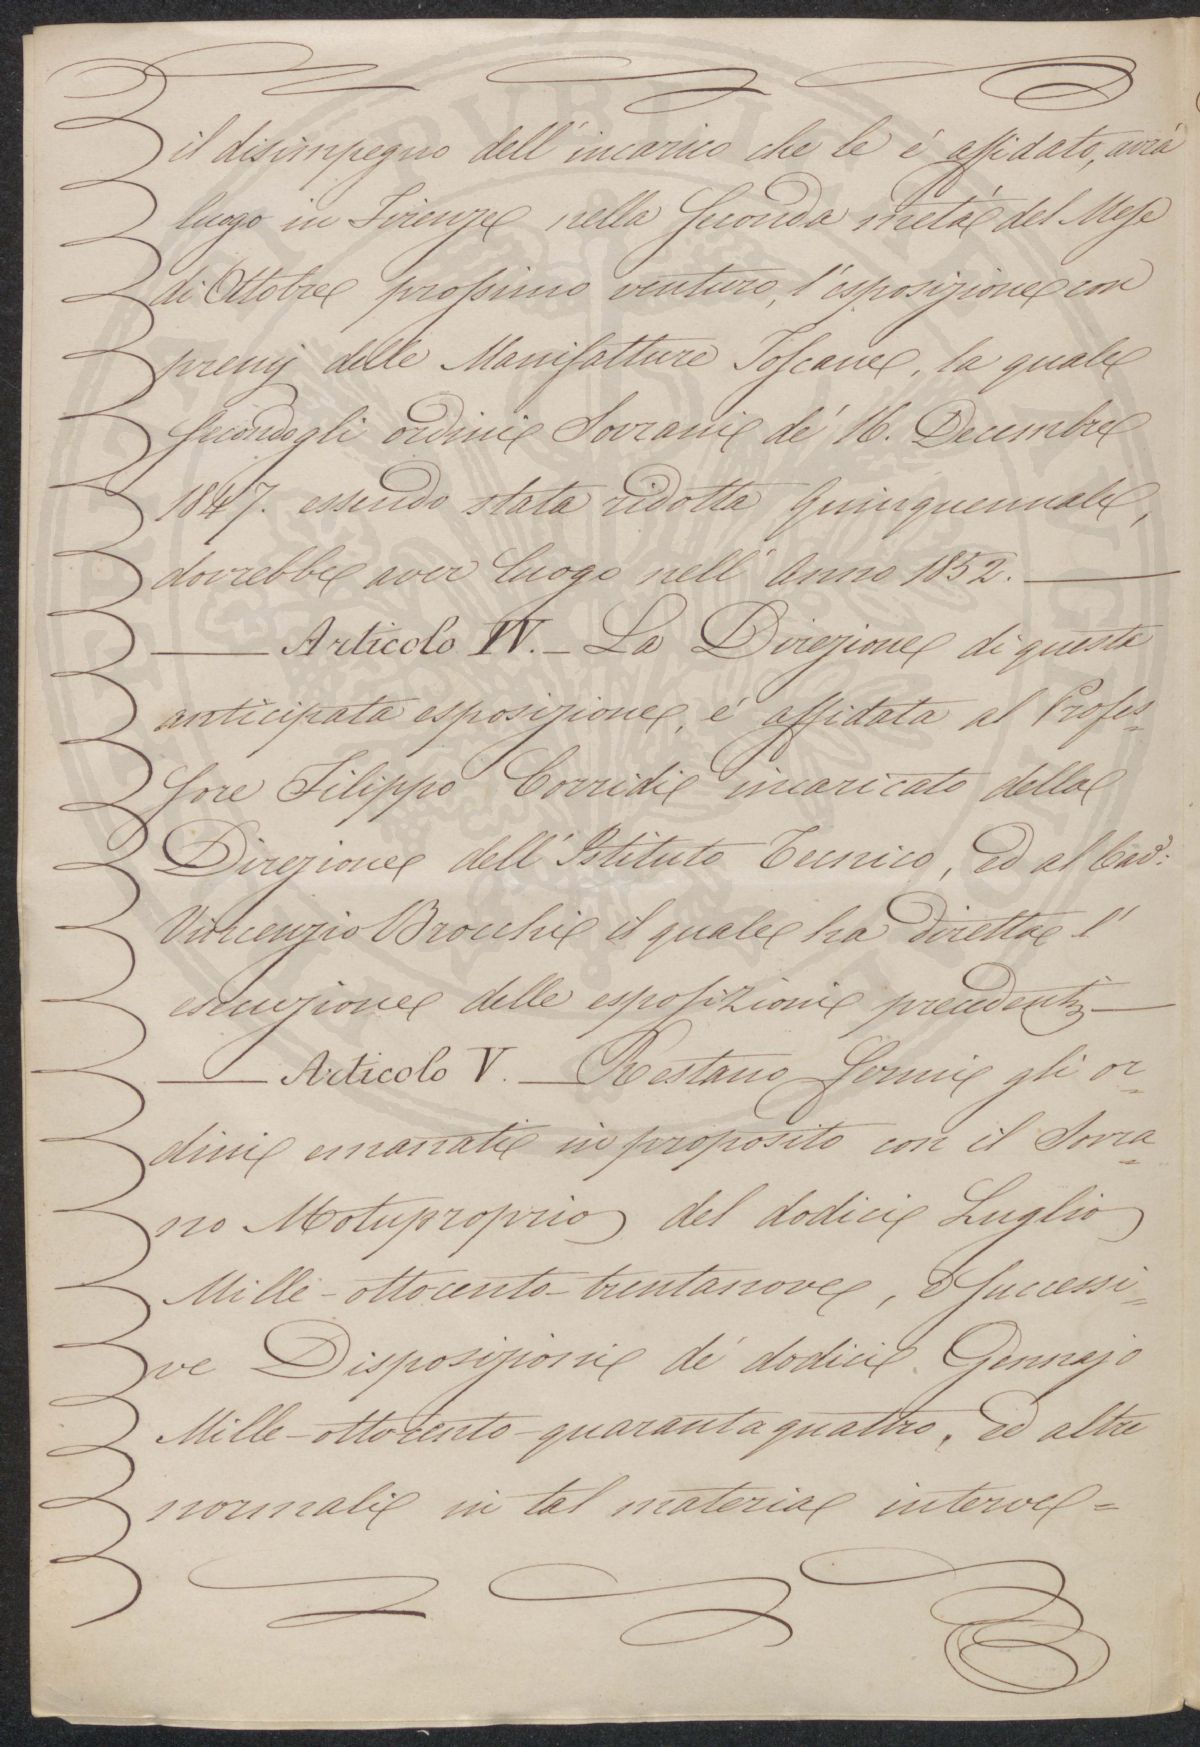 il disimpegno dell'incarico che le é affidato, avrá
luogo in Firenze nella seconda metá del Mese
di Ottobre prossimo venturo, l'esposizione con
premj delle Manifatture Toscane, la quale
secondo gli ordini Sovrani de' 16. Decembre
1847. essendo stata ridotta quinquennale,
dovrebbe aver luogo nell'Anno 1852.
Articolo IV. – La Direzione di questa
anticipata esposizione, é affidata al Profes=
sore Filippo Corridi incaricato della
Direzione dell'Istituto Tecnico, ed al Cav:
Vincenzio Brocchi il quale ha diretta l'
esecuzione delle esposizioni precedenti
Articolo V. – Restano fermi gli or=
dini emanati in proposito con il Sovra=
no Motuproprio del dodici Luglio
Mille-ottocento-trentanove, e successi=
ve Disposizioni de' dodici Gennajo
Mille-ottocento-quarantaquattro, ed altre
normali in tal materia interve=